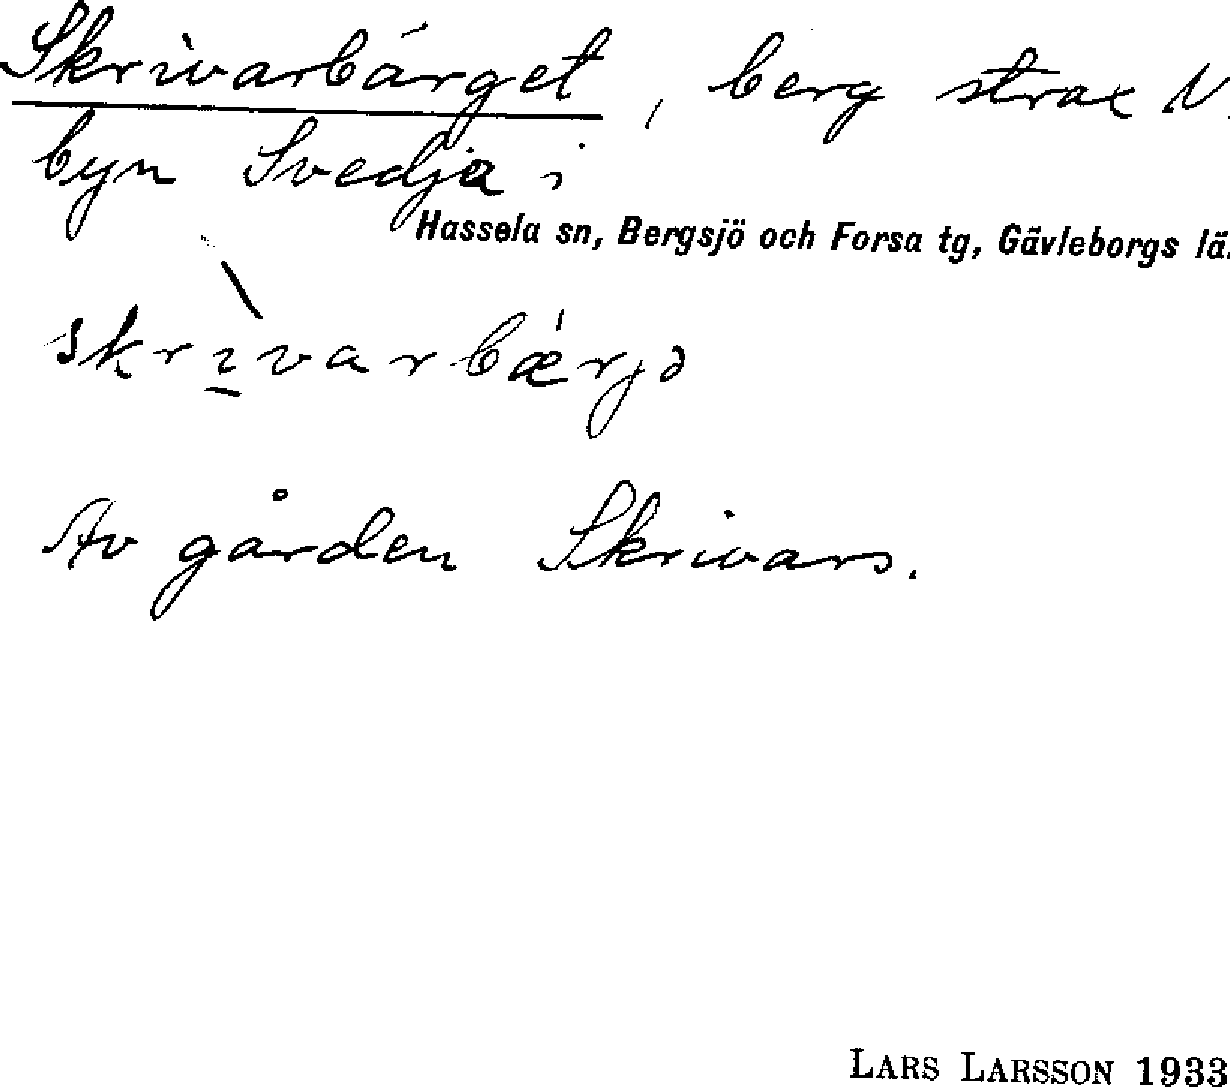 Skrivarbärget, berg strax N.
byn Svedja i
Hassela sn, Bergsjö och Forsa tg, Gävleborgs lä
skrìvarbǽrjə
Av gården Skrivars.
LARS LARSSON 1933